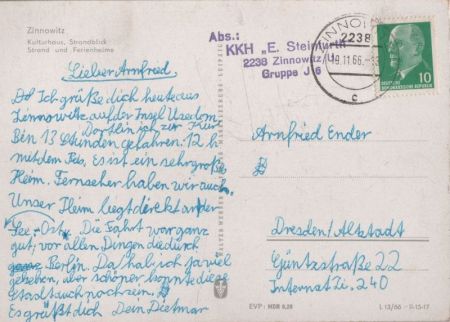 Zinnowitz
Kulturhaus, Strandblick
Strand und Ferienheime
Lieber Arnfried.
Do! Ich grüße dich heute aus
Zinnowitz auf der Insel Usedom.
Dorthin ich zur Kur
Bin 13 Stunden gefahren. 12 h
mit dem Pos. Es ist ein sehr große
Heim. Fernseher haben wir auch.
Unser Heim liegt direkt an der
See-Ost. Die Fahrt war ganz
gut, vor allen Dingen die durch
ganz Berlin. Da hab ich ja viel
gesehen, aber schöner konnte diese
Stadt auch noch sein.
Es grüßt dich Dein Dietmar
Abs.:
KKH „E. Steinfurth"
2238 Zinnowitz/U.
Gruppe J 6
ZINNOWITZ
2238
19.11.66.
c
10
DEUTSCHE
DEMOKRATISCHE REPUBLIK
Arnfried Ender
Dresden/Altstadt
Güntzstraße 22
Internat Zi. 240
EVP: MDR 0,20
L 13/66 II-15-17